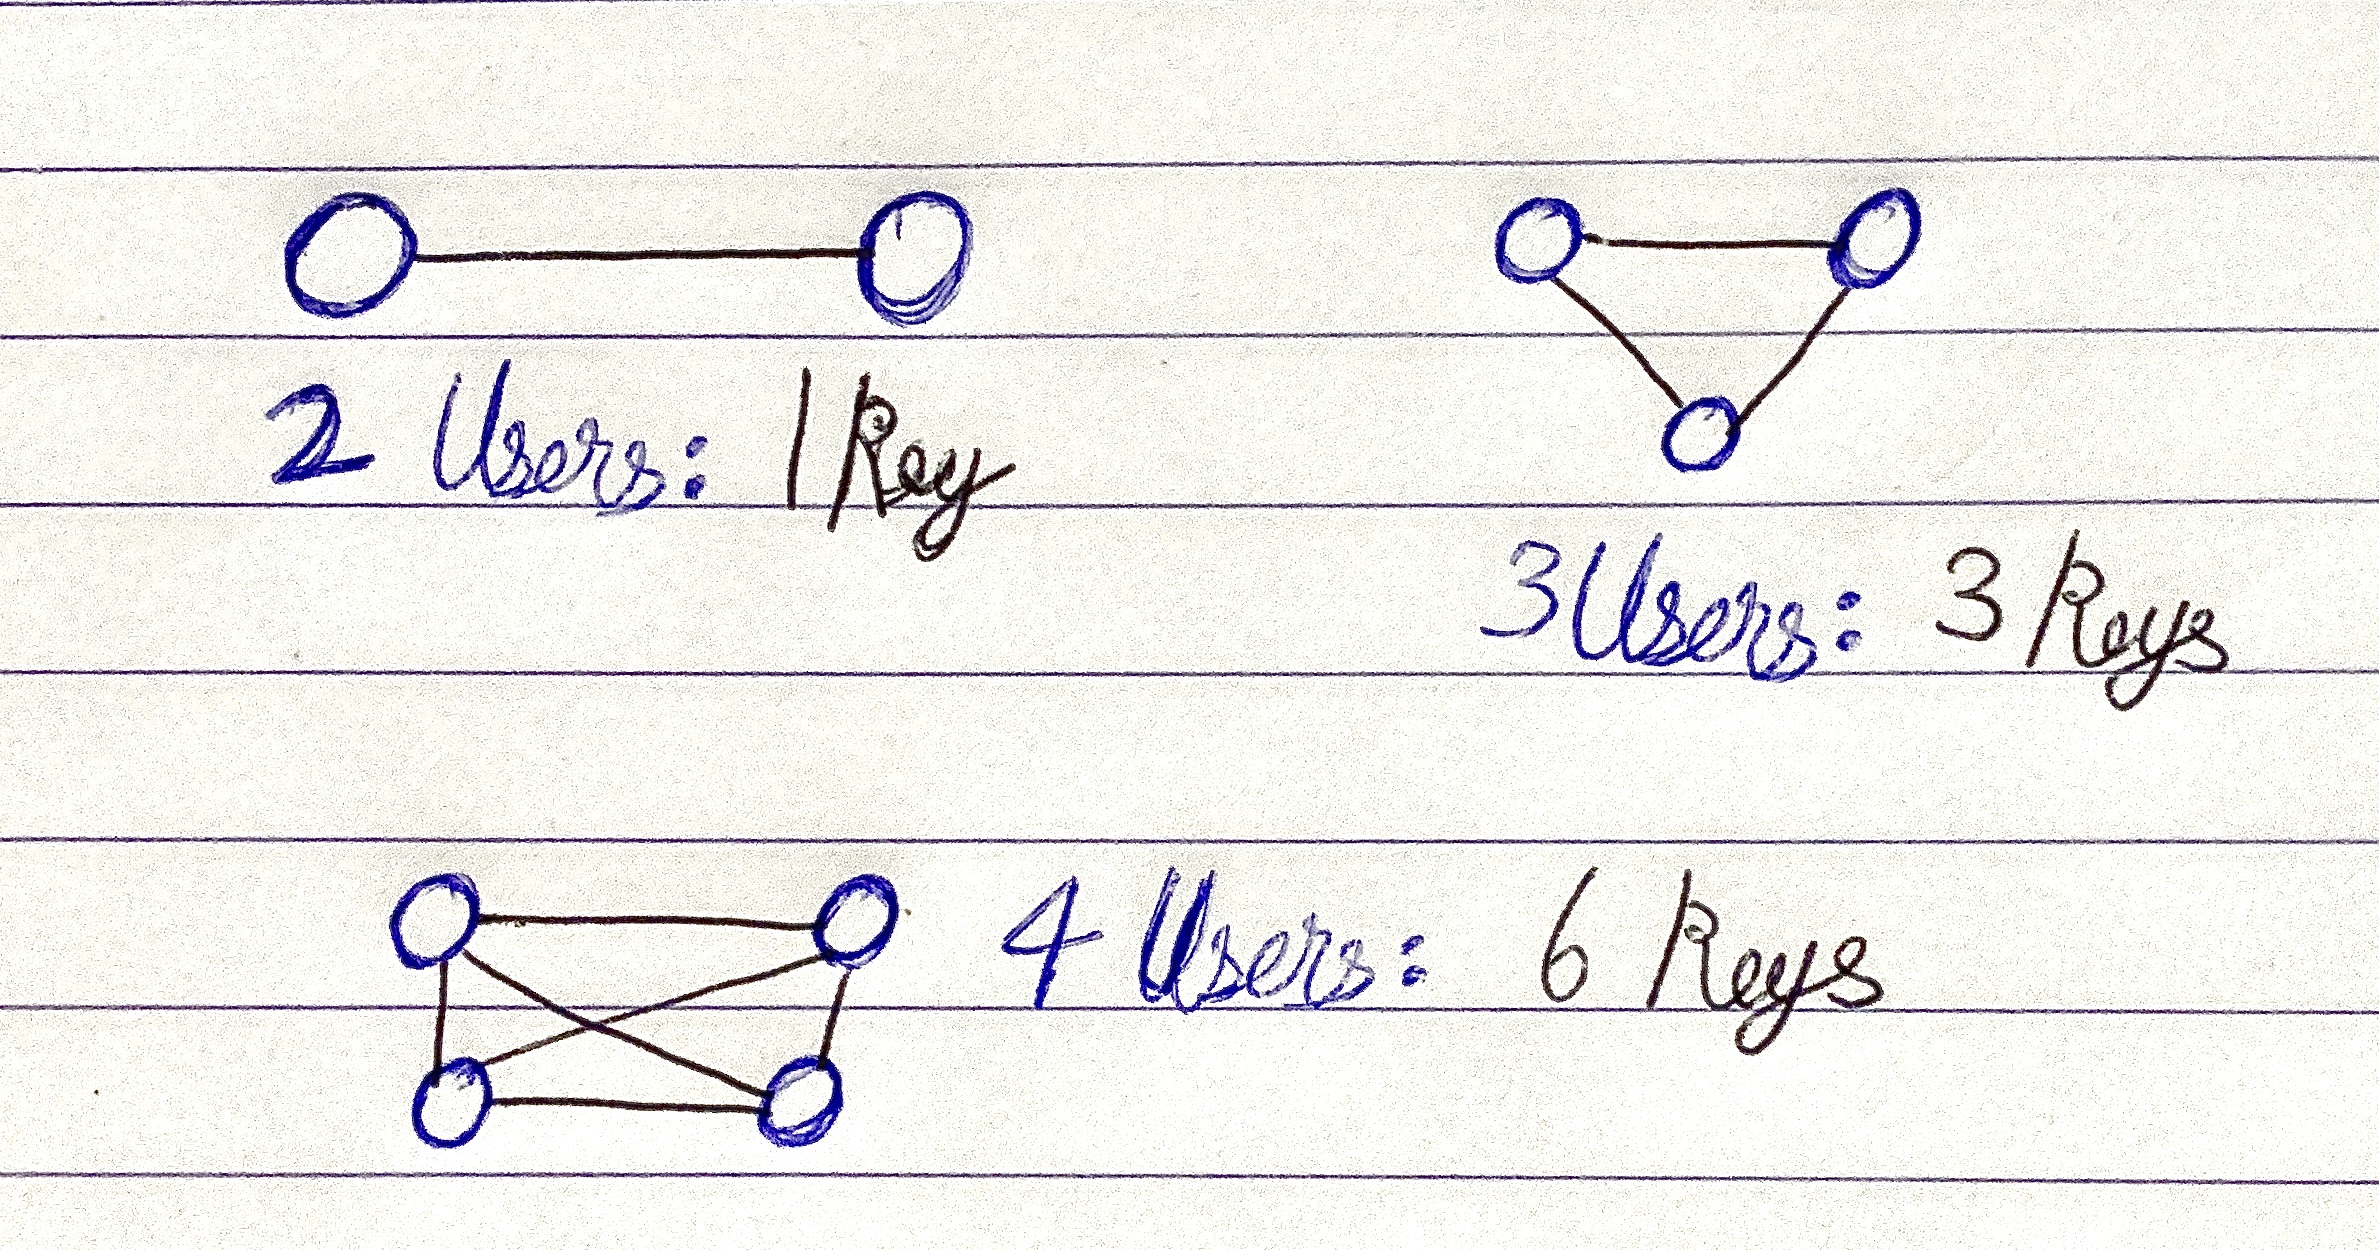 2 Users: 1 Key
3 Users: 3 Keys
4 Users: 6 Keys